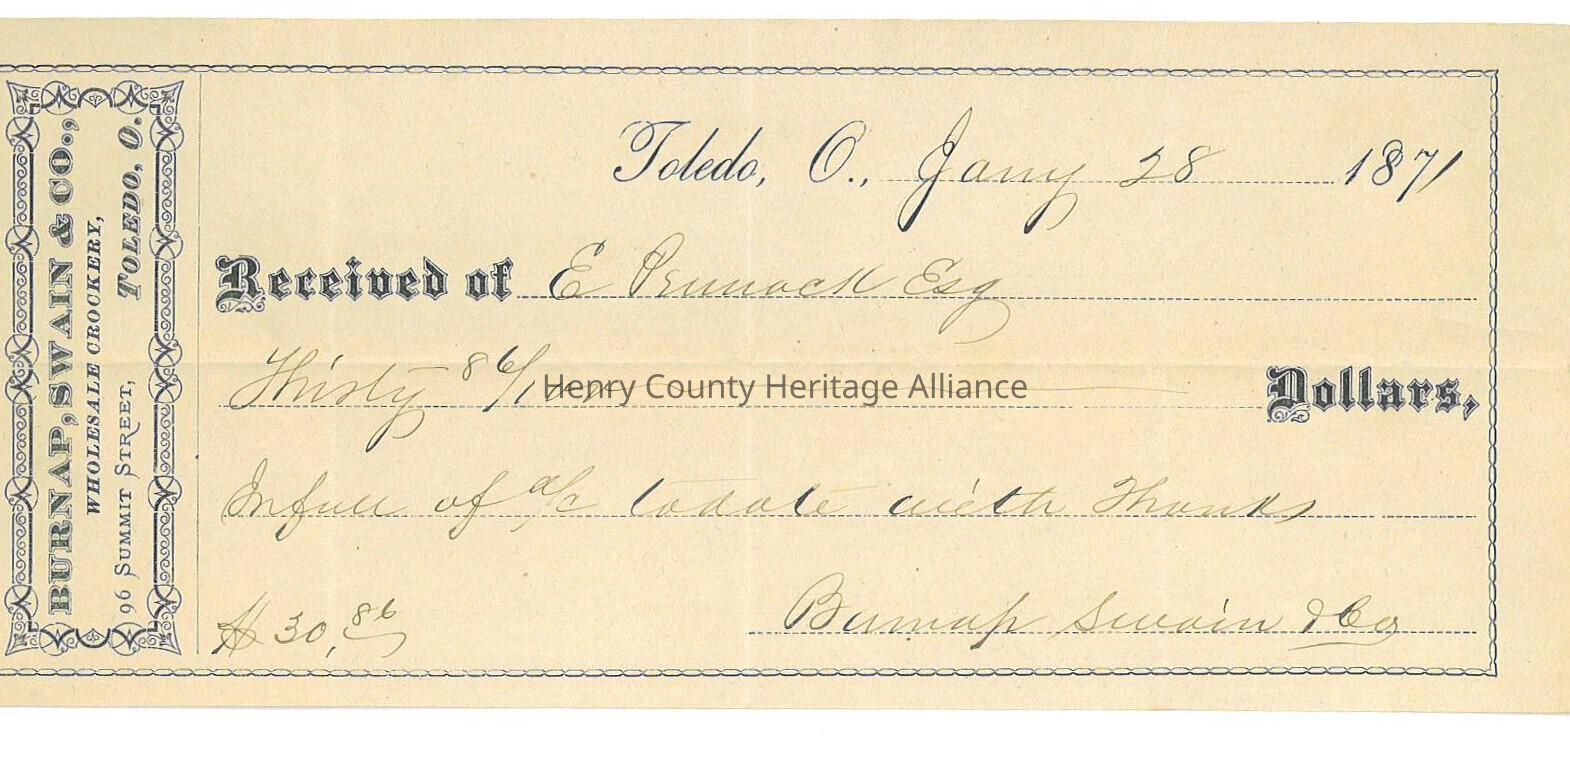 BURNAP, SWAIN & CO.,
WHOLESALE CROCKERY,
96 SUMMIT STREET, TOLEDO, O.
Toledo, O., Jany 28 1871
Received of E Pennock Esq
Thirty 86/100 Dollars,
Henry County Heritage Alliance
In full of a/c to date with Thanks
$30,86
Burnap Swain & Co